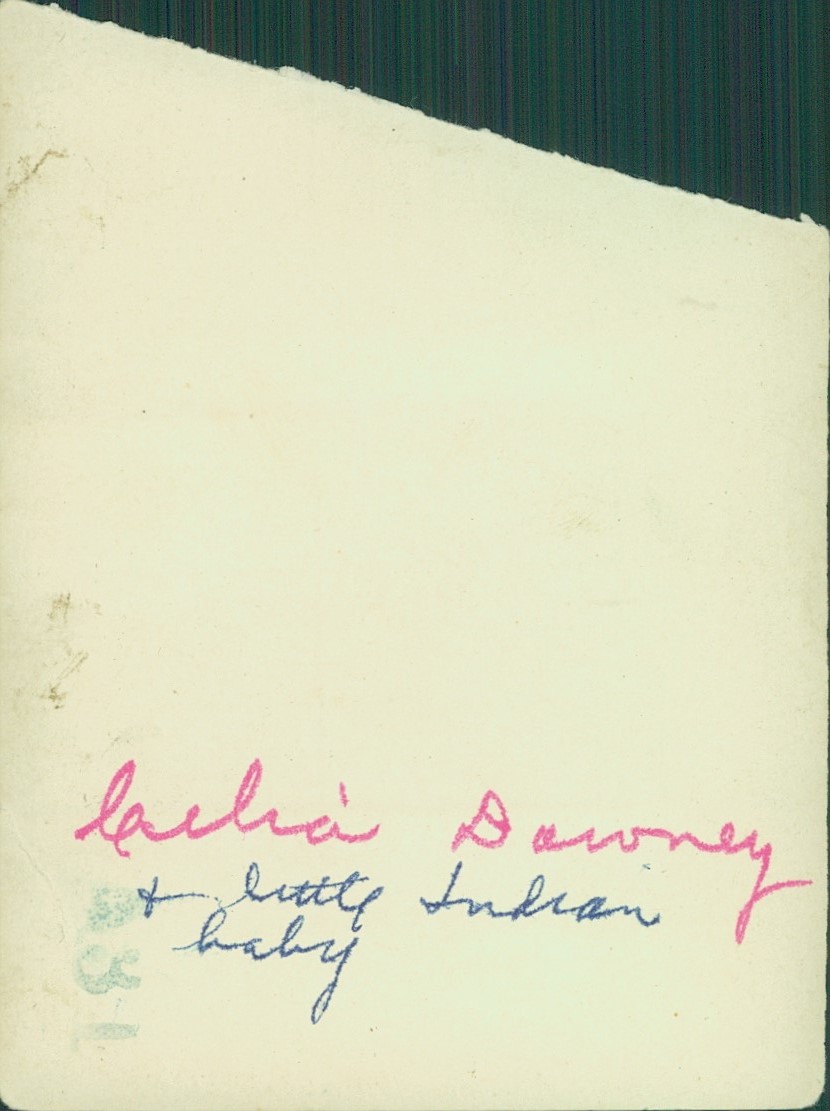 Celia Downey
+ little Indian
baby